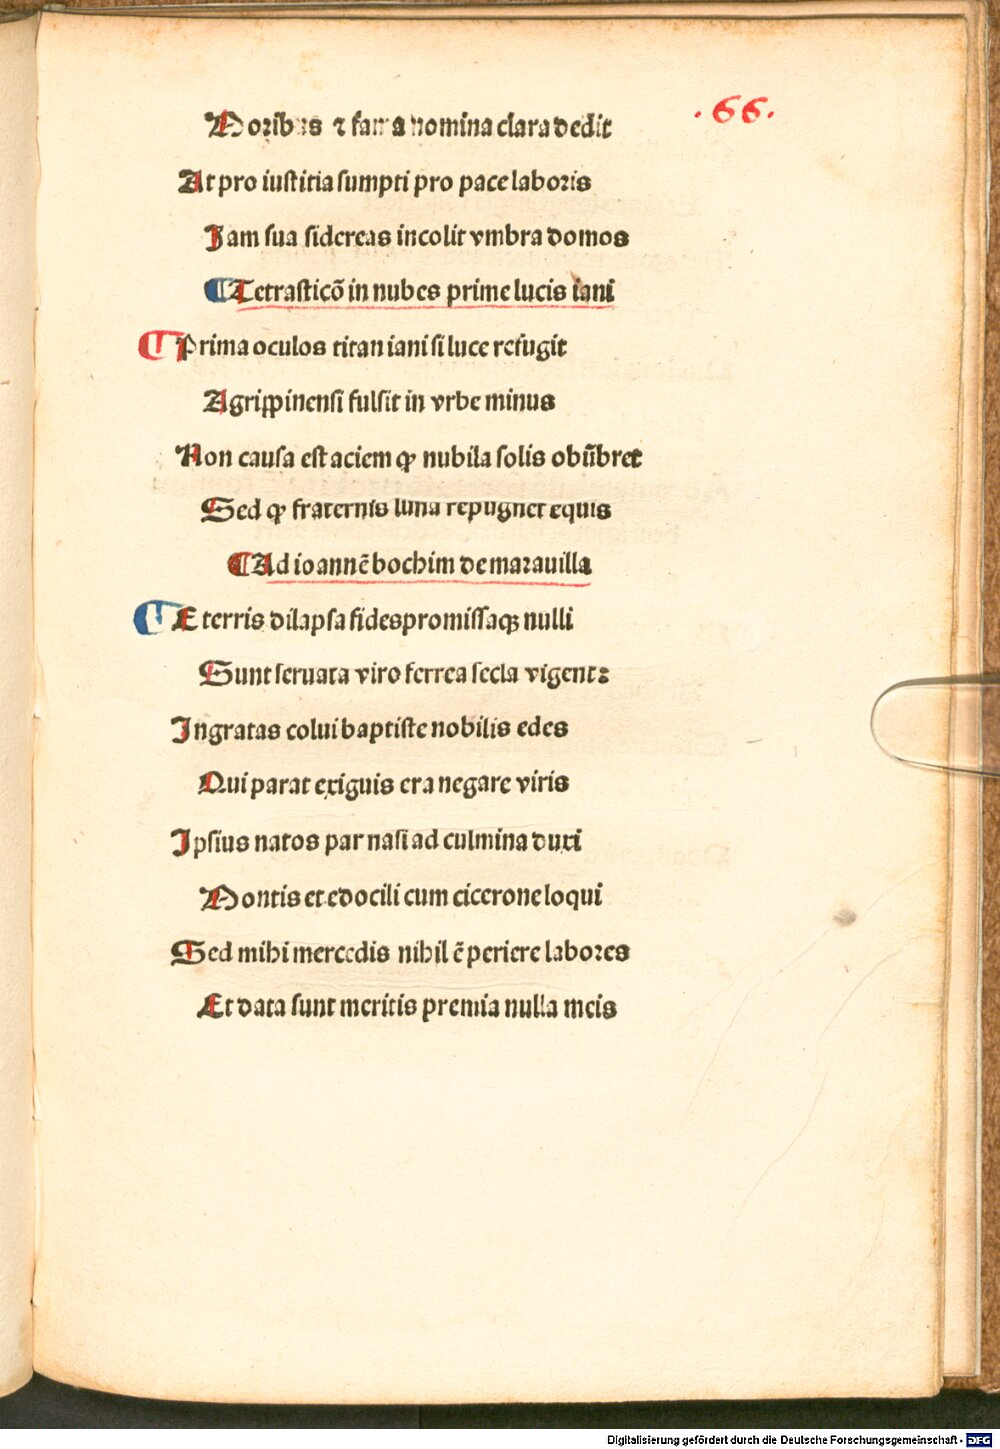 .66.
Moribus ⁊ fama nomina clara dedit
At pro iusticia sumpti pro pace laboris
Jam sua sidereas incolit vmbra domos
¶Tetrasticō in nubes prime lucis iani
¶Prima oculos titan iani si luce refugit
Agrippinensi fulsit in vrbe minus
Non causa est aciem ꝙ nubila solis obūbret
Sed ꝙ fraternis luna repugnet equis
¶Ad ioannē bochim de marauilla
¶E terris dilapsa fides promissaqꝫ nulli
Sunt seruata viro ferrea secla vigent:
Ingratas colui baptiste nobilis edes
Qui parat exiguis era negare viris
Ipsius natos parnasi ad culmina duxi
Montis et edocili cum cicerone loqui
Sed mihi mercedis nihil ē periere labores
Et data sunt meritis premia nulla meis
Digitalisierung gefördert durch die Deutsche Forschungsgemeinschaft - DFG